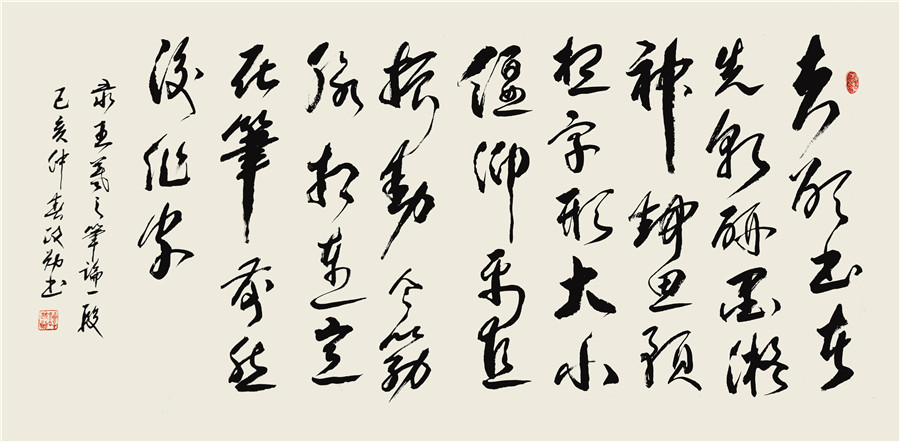 夫欲书者
先乾研墨凝
神静思预
想字形大小
偃仰平直
振動令筋
脉相連意
在筆前然
後作字
录王羲之筆論一段
己亥仲春政书